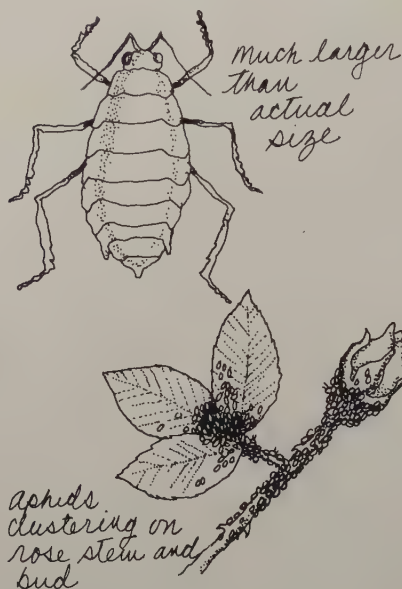 much larger
than
actual
size
aphids
clustering on
rose stem and
bud